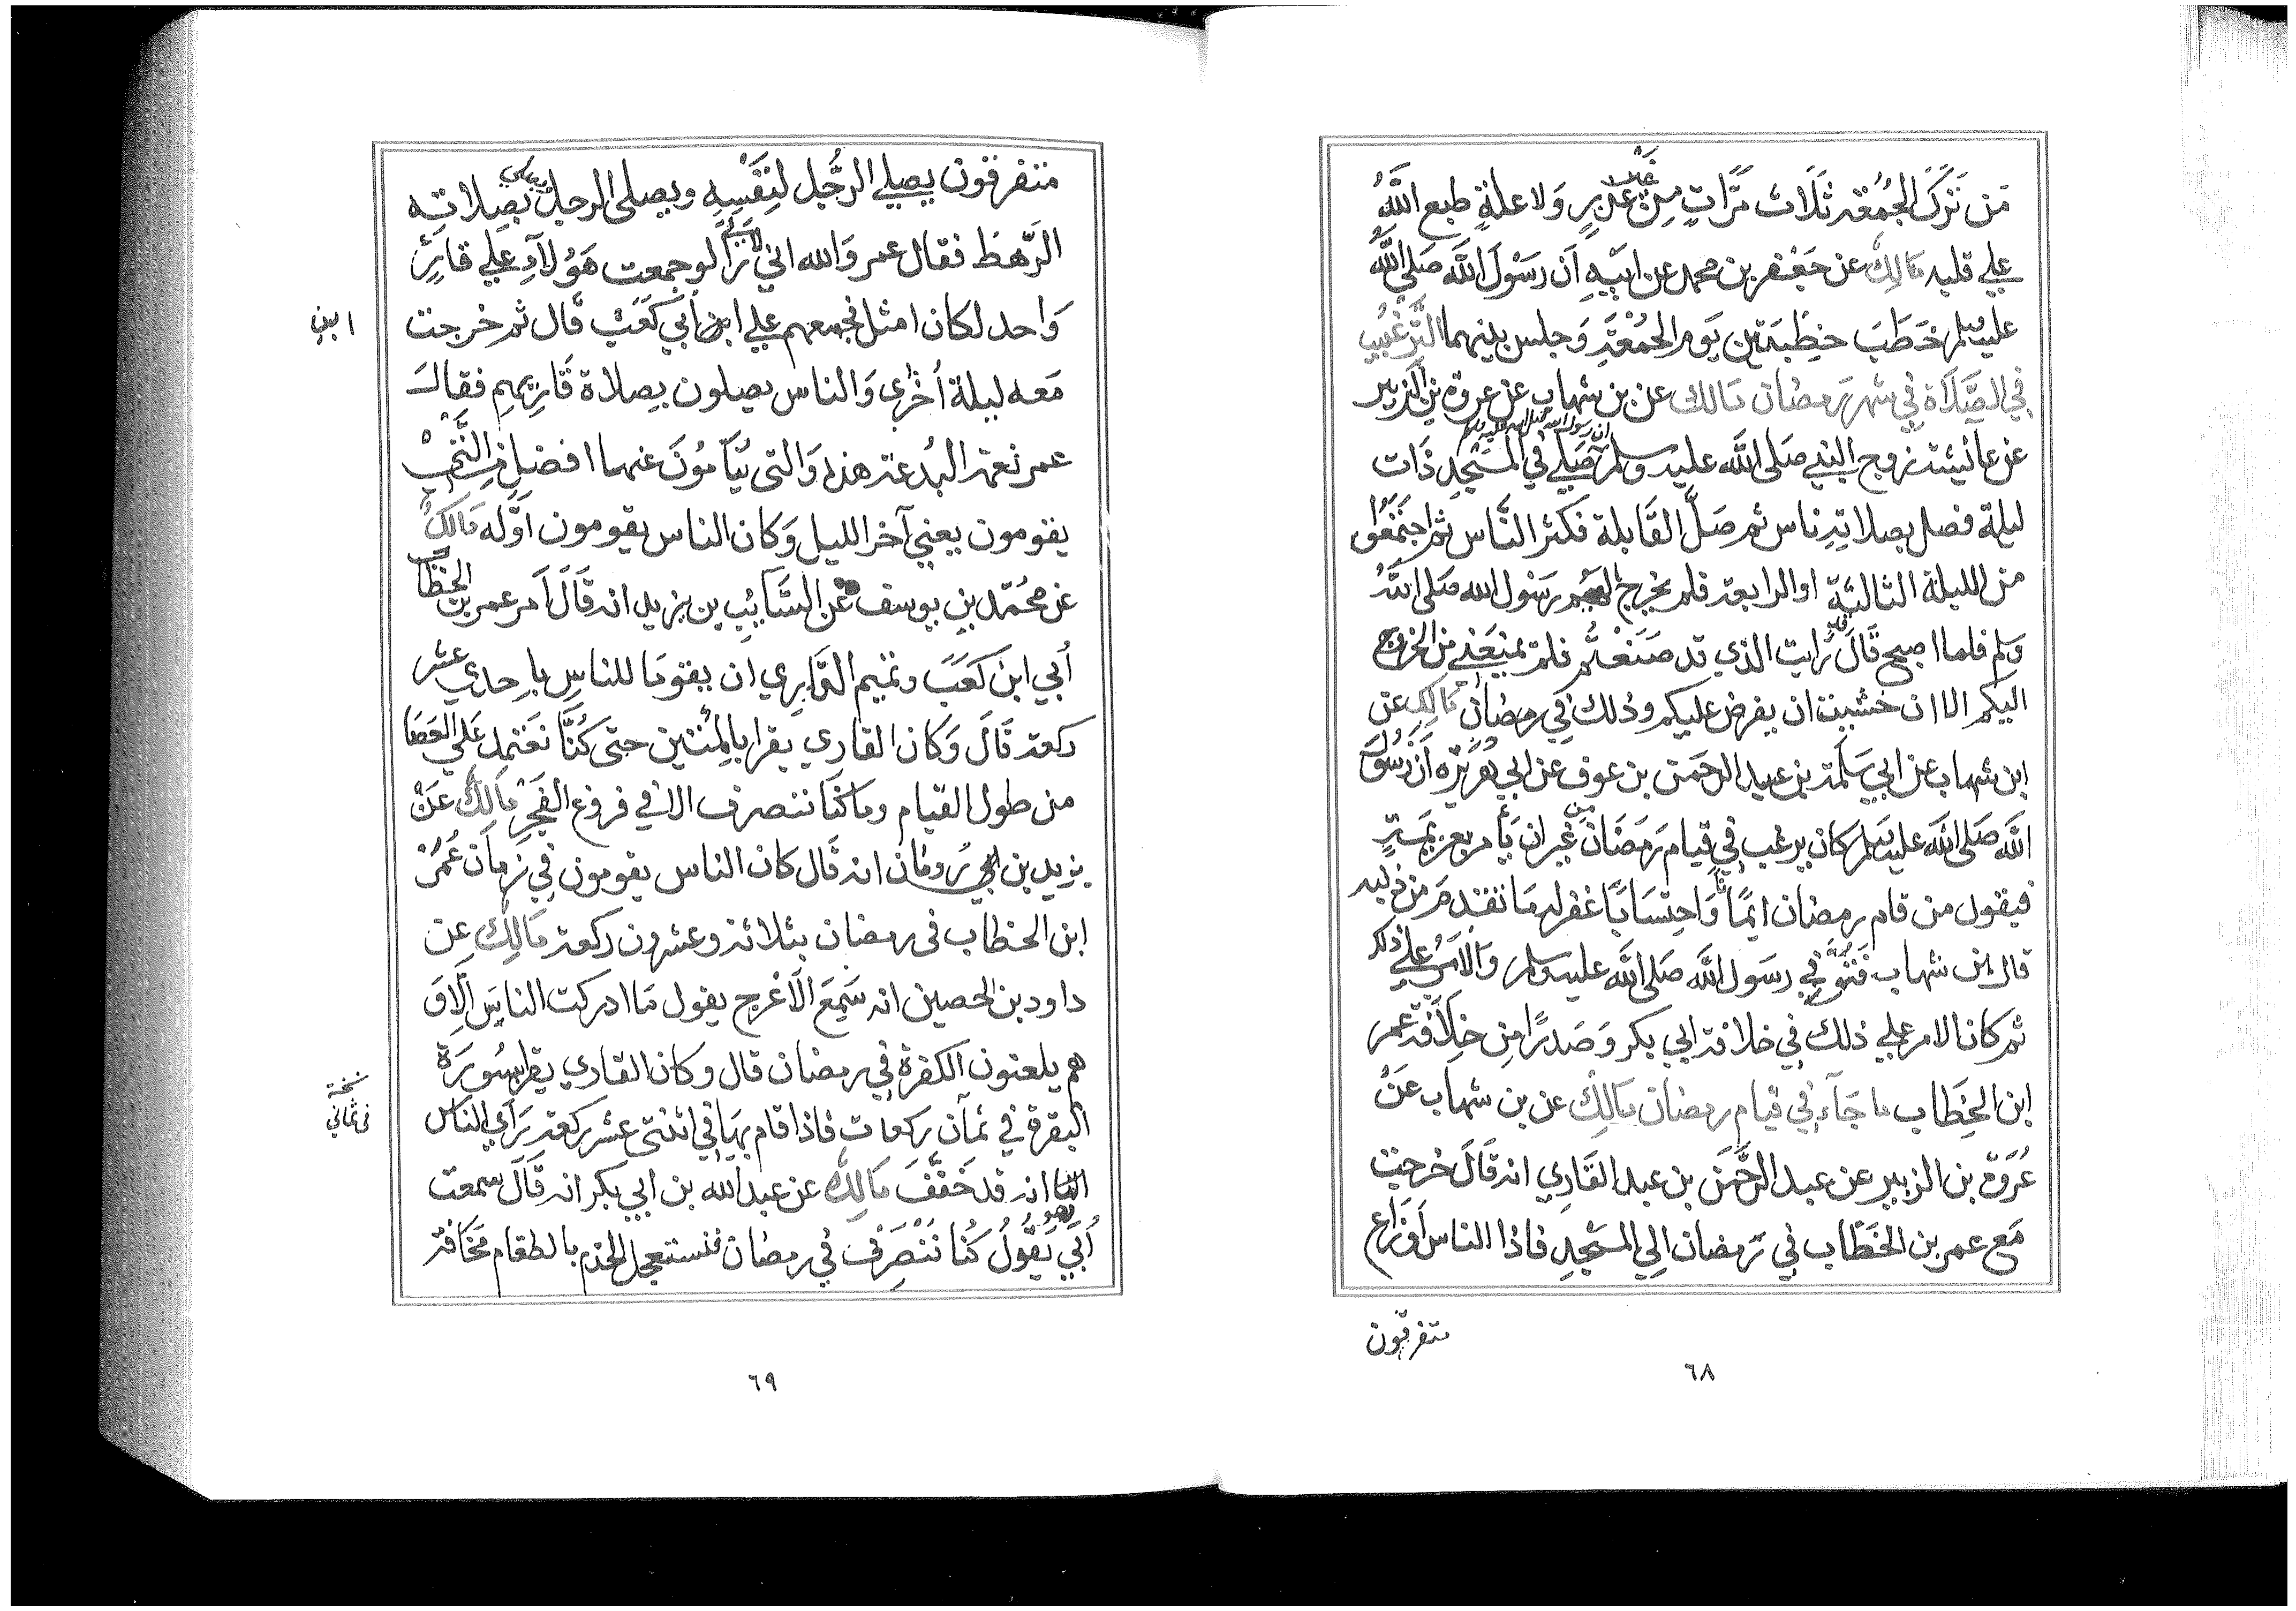 مَن تَرَكَ الجُمُعَة ثَلَاث مَرَّاتٍ مِن غير عُذرٍ وَلا علةٍ طبع اللَّهُ
علي قلبه مَالِكٌ عن جَعْفر بن محمد عن ابيهِ اَن رَسُولَ اللَّهِ صَلى اللَّهُ
عليه وسلم خَطَبَ خطبَتَين يَوم الجُمُعَةِ وَجلس بينهما التَّرغيب
في الصَّلَاة في شهر رَمضان مَالك عن بن شهاب عن عروة بن الزبير
عن عائشة زوج النبي صَلى اللَّه عليه وسلم ان رسول الله صلى الله عليه وسلم صَلي في المَسْجِدِ ذَات
ليلة فصلى بصلاتِهِ ناس ثم صَلَّى القَابلة فكثر النَّاس ثم اجتَمَعُوا
من الليلة الثالثة او الرابعة فلم يخرج اليهم رَسُول الله صَلى اللَّهُ
وسلم فلما اصبح قَالَ قد رَايت الذي قد صَنَعْتُم فلم يمنَعْني من الخروج
اليكم الا ان خشيت ان يفرض عليكم وذلك في رمضان مَالِك عن
ابن شهاب عن ابي سَلَمة بن عبد الرحمن بن عوف عن ابي هُرَيْرَة اَن رَسُول
اللَّه صَلى اللَّه عليه وسلم كان يرغب في قيام رَمَضَان من غير ان يَأمر بعزيمَةٍ
فيقول من قام رمضان ايمانًا وَاحتِسَابًا غفر له مَا تقدم من ذنبه
قال ابن شهاب فَتُوُفِّي رسَول اللَّه صَلى اللَّه عليه وسلم وَالاَمرُ علي ذلك
ثم كان الامر علي ذلك في خلافة ابي بكر وَصَدرًا مِن خِلَافَة عمر
ابن الخَطاب ما جَاءَ في قيام رمضان مَالِكٌ عن بن شهاب عَنْ
عُرَوة بن الزبير عن عبد الرَّحمَن بن عبد القَارِي انه قَالَ خرجت
مَع عمر بن الخَطَّاب في رَمضان الي المسْجِدِ فاذا الناس اَوزَاع
متفرقون
٦٨
متفرقون يصلي الرَّجُل لنَفْسِهِ ويصلي الرجل فيصلي بصلاتِهِ
الرَّهط فقال عمر وَالله اني لأرَا لو جمعت هَؤُلاَءِ علي قارِئٍ
وَاحد لكان امثل فجمعهم علي ابن أبي كَعْب قَال ثم خرجت
ابن
مَعه ليلة اُخْرى وَالناس يصلون بِصلاة قَارِيهم فقال
عمر نعمة البُدعة هذه وَالتي يَنَامُونَ عنها افضل من الَّتي
يقومون يعني آخر الليل وَكان الناس يقومون اَوَّله مَالكٌ
عن محُمَّد بنِ يوسف عن السَّائِب بن يزيد انه قَالَ اَمر عمر بن الخطاب
اُبي ابن كَعَبَ وتميم الدَّارِي ان يقومَا للناسِ باِحدي عشر
ركعة قَالَ وَكان القاري يقرا بالمئين حتى كُنَّا نَعْتمِد عَلي العَصَا
من طول القيام وما كنَّا ننصرف الا في فروع الفَجْرِ مَالِكٌ عَنْ
يزيد بن رُومان انه قَال كان الناس يقومون في زمَان عُمَرْ
ابن الخطاب في رمضان بثلاثة وعشرون ركعة مَالِك عن
داود بن الحصين انه سَمِعَ الاَعْرج يقول مَا ادركت الناسَ اِلاَّ وَ
هم يلعنون الكفرة في رمضان قال وكان القاري يقرا سُورَة
البقرة في ثمآن ركعات فاذا قام بهَا في اثنتي عشر ركعة رَاَي الناس
نسخة
فى ثماني
انه قد خَفَّفَ مَالِكٌ عن عبد الله بن ابي بكر انه قَالَ سمعت
اُبَي يَقُولُ كُنا نَنْصَرفُ في رمضان فنستعجل الخدم بالطعام مَخَافة
٦٩